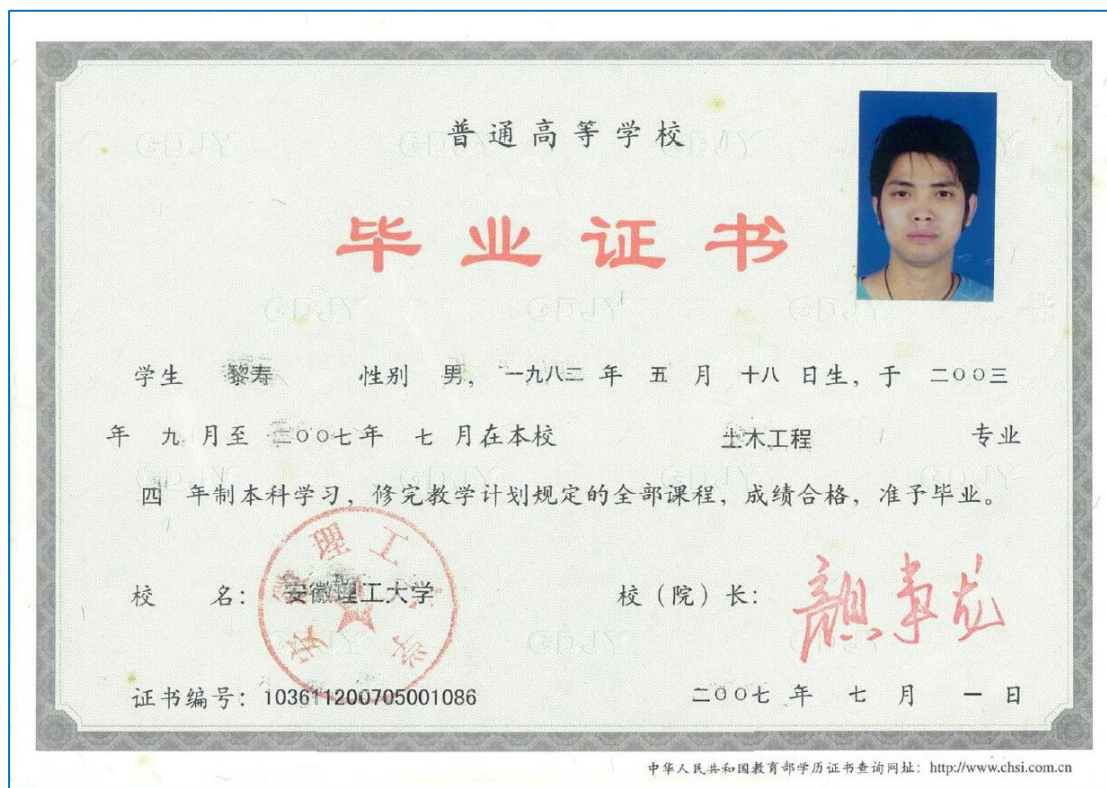 普通高等学校
毕业证书
学生 黎寿 性别 男，一九八二 年 五 月 十八 日生，于 二〇〇三
年 九 月至 二〇〇七年 七 月在本校 土木工程 专业
四 年制本科学习，修完教学计划规定的全部课程，成绩合格，准予毕业。
校 名：安徽理工大学 校（院）长：
安徽理工大学
证书编号：103611200705001086 二〇〇七 年 七 月 一 日
中华人民共和国教育部学历证书查询网址：http://www.chsi.com.cn